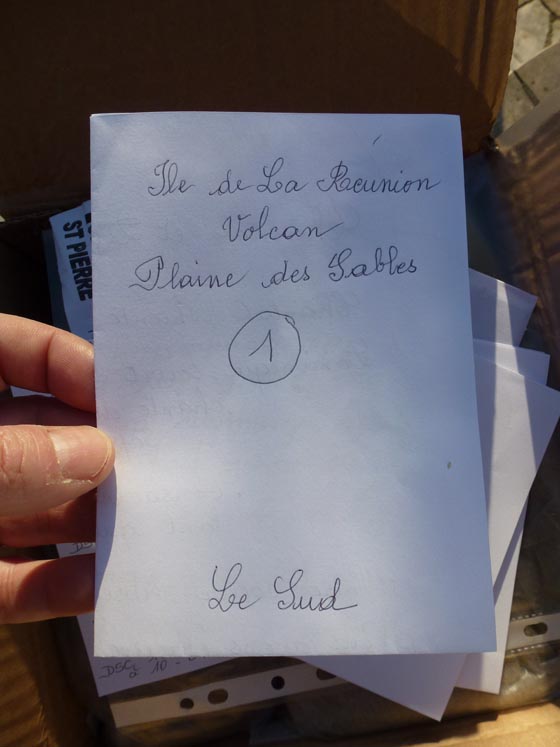 Ile de La Réunion
Volcan
Plaine des Sables
1
Le Sud
ST PIERRE